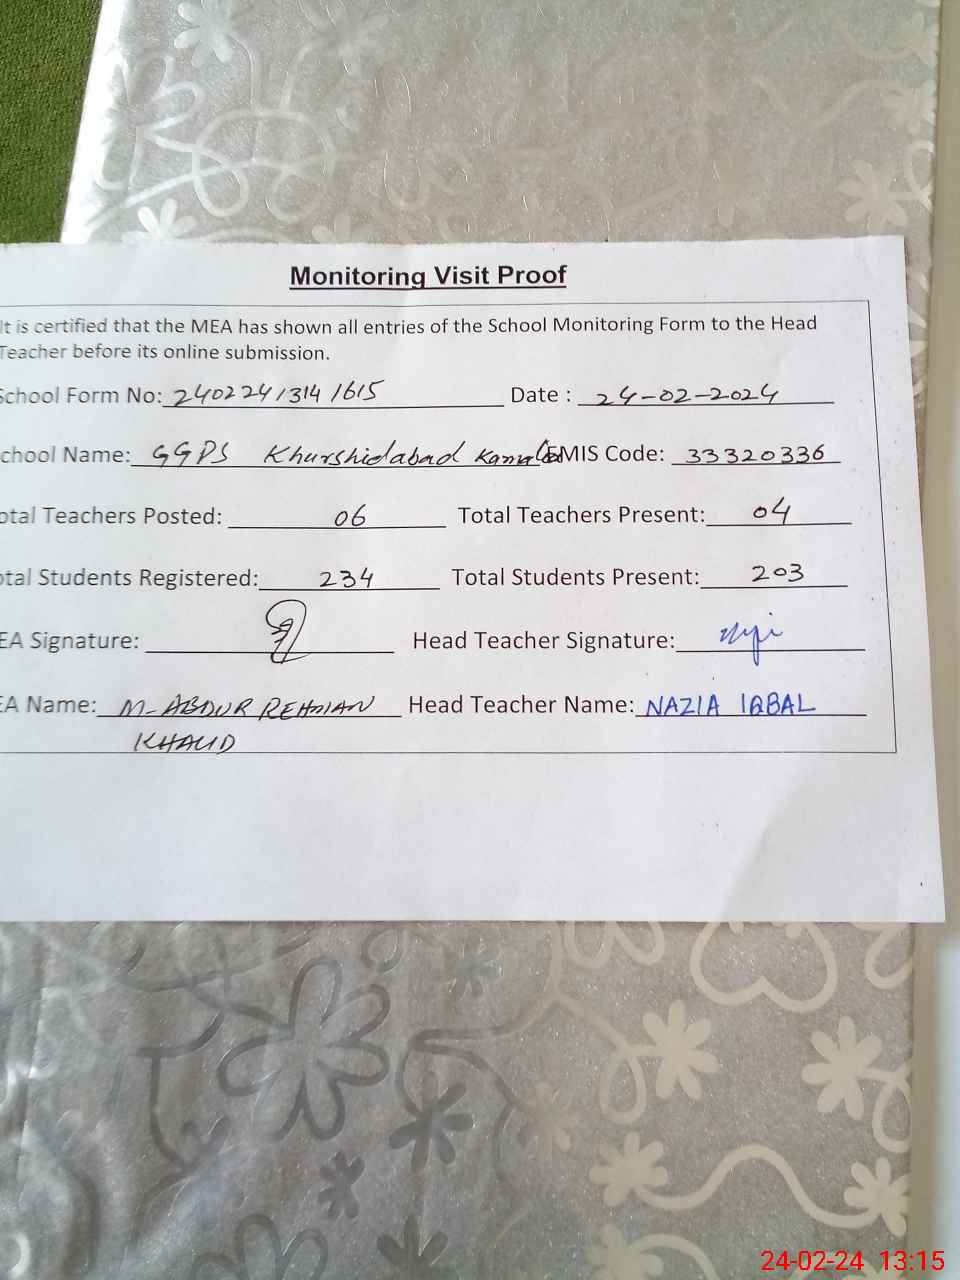 Monitoring Visit Proof
It is certified that the MEA has shown all entries of the School Monitoring Form to the Head
Teacher before its online submission.
School Form No: 2402241314 1615 Date : 24-02-2024
chool Name: GGPS Khurshidabad EMIS Code: 33320336
otal Teachers Posted: 06 Total Teachers Present: 04
otal Students Registered: 234 Total Students Present: 203
EA Signature: Head Teacher Signature:
EA Name: M-ABDUR REHMAN Head Teacher Name: NAZIA IQBAL
KHALID
24-02-24 13:15